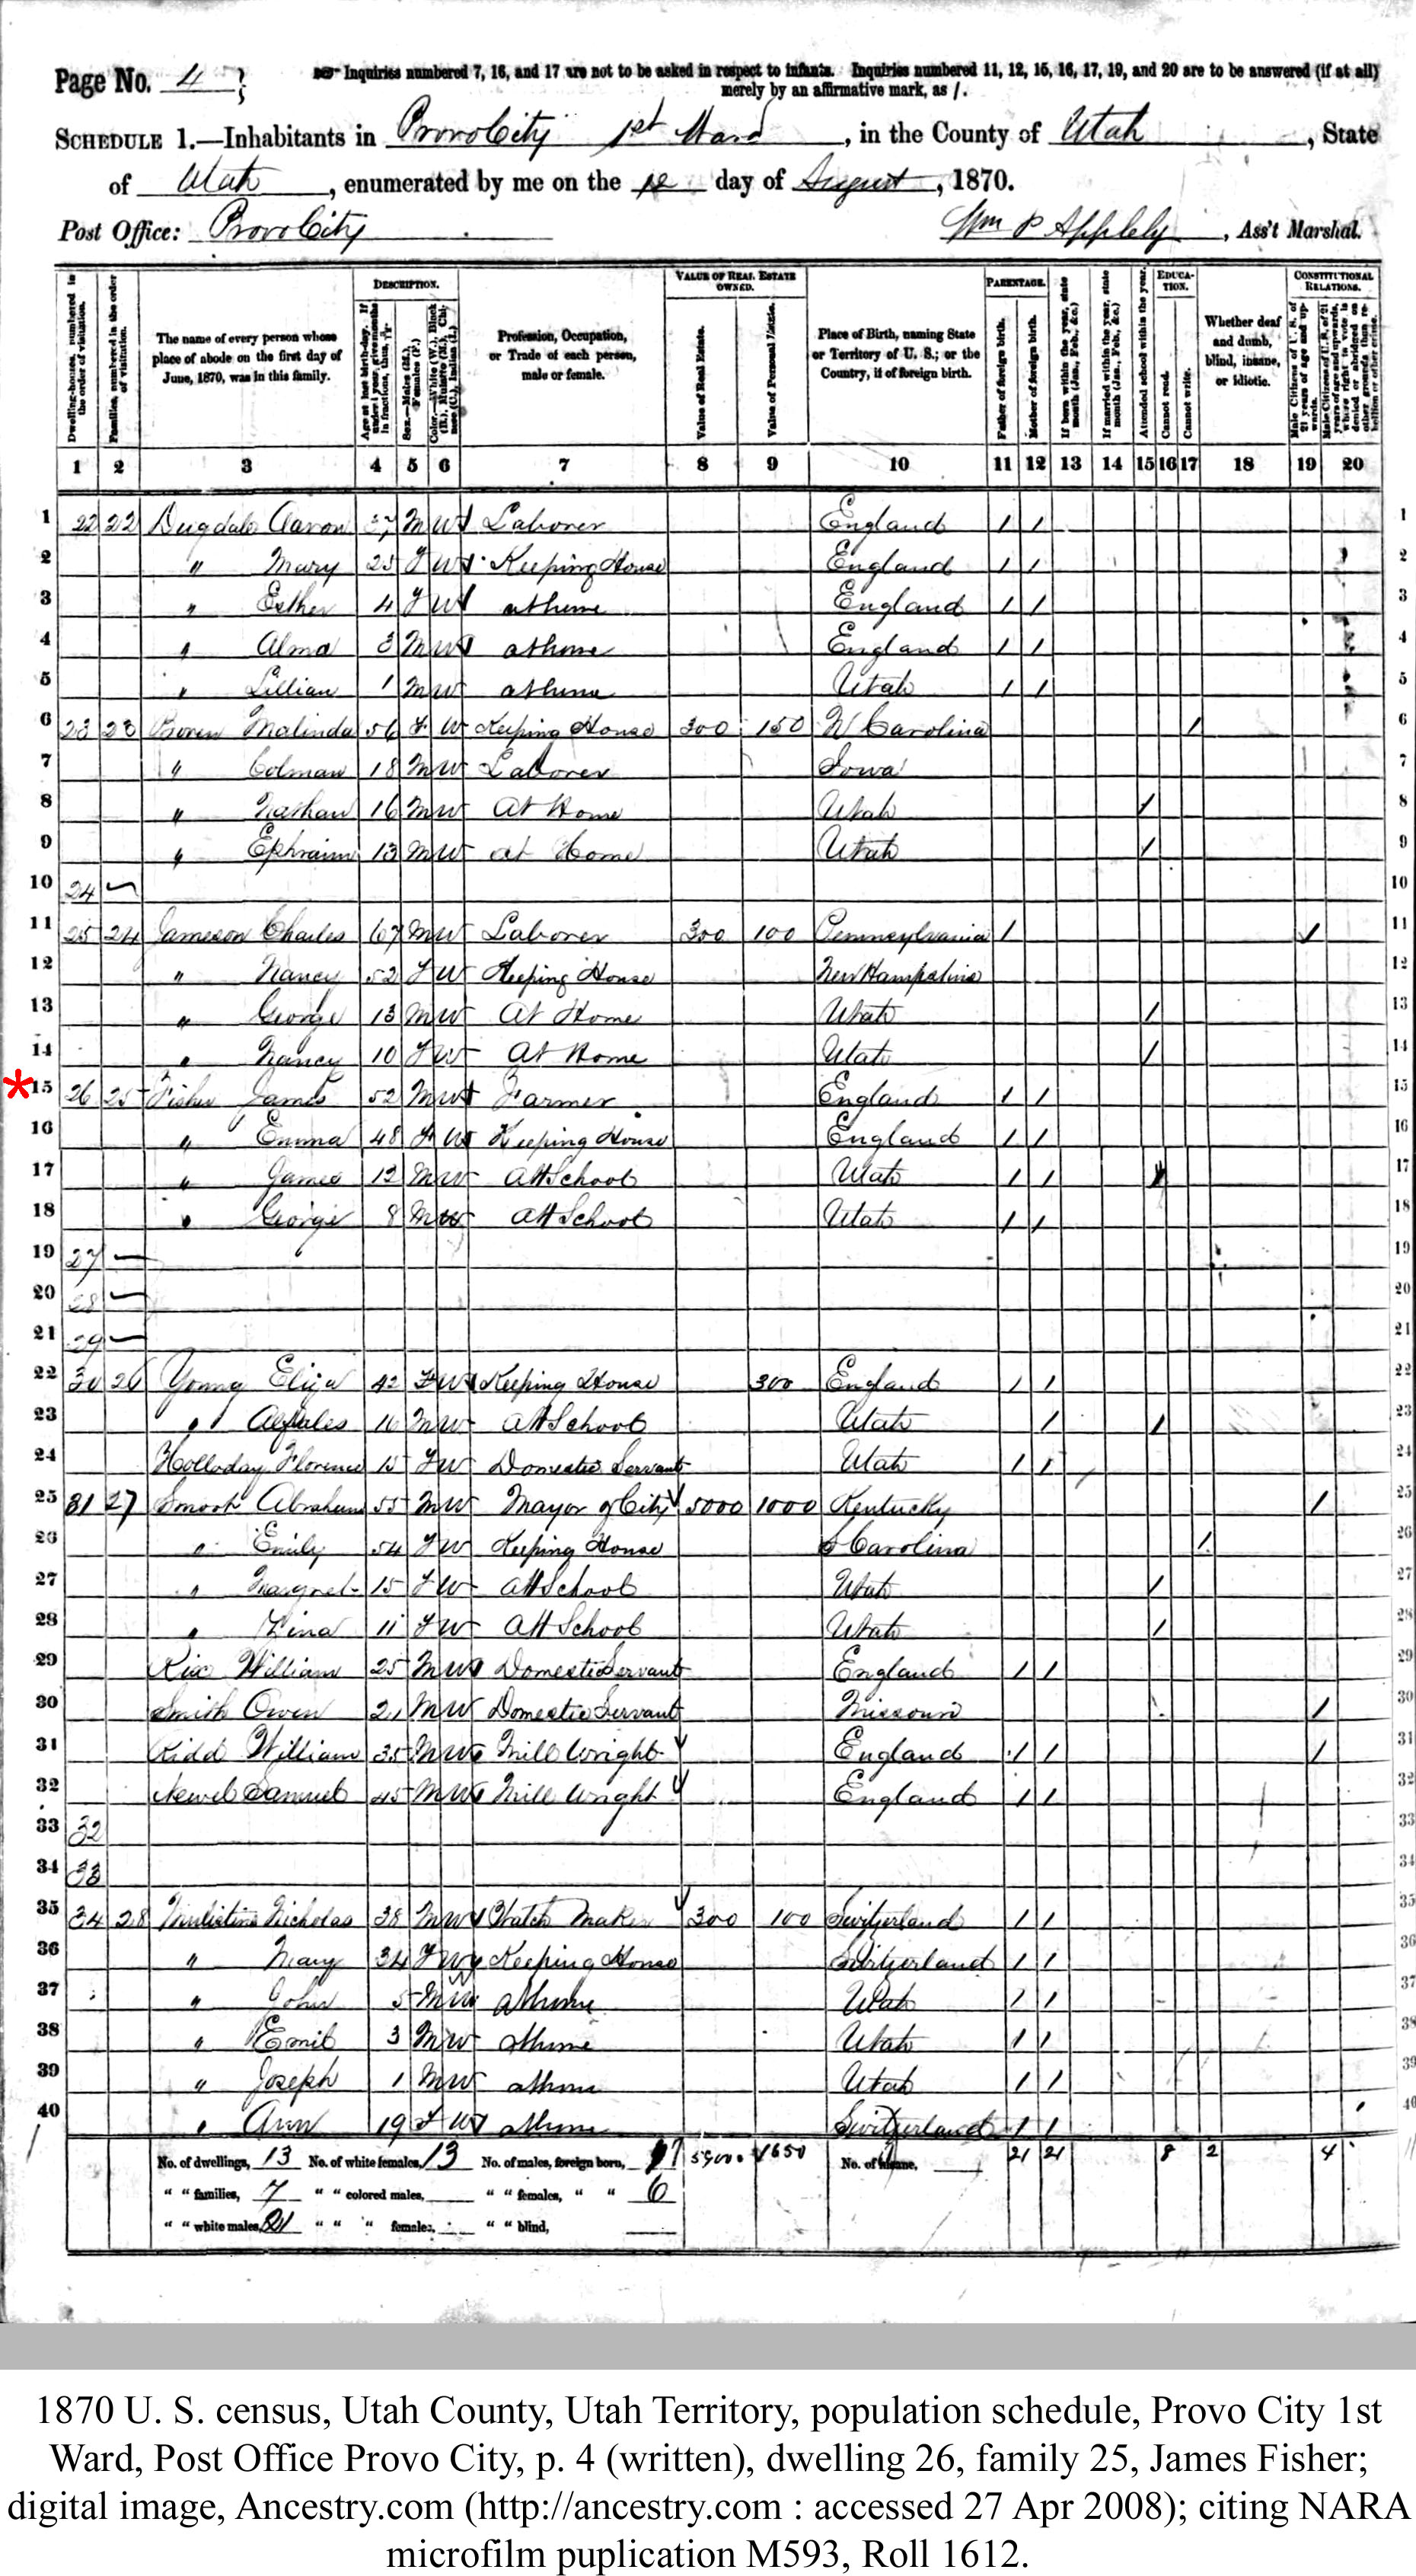 Page No. 4
Inquiries numbered 7, 16, and 17 are not to be asked in respect to infants. Inquiries numbered 11, 12, 15, 16, 17, 19, and 20 are to be answered (if at all)
merely by an affirmative mark, as /.
SCHEDULE 1.—Inhabitants in Provo City 1st Ward, in the County of Utah, State
of Utah, enumerated by me on the 12 day of August, 1870.
Post Office: Provo City
Wm P Appleby, Ass't Marshal.
Dwelling-houses, numbered in the order of visitation.
Families, numbered in the order of visitation.
The name of every person whose place of abode on the first day of June, 1870, was in this family.
DESCRIPTION.
Age at last birth-day. If under 1 year, give months in fractions, thus,
Sex.—Males (M.), Females (F.)
Color.—White (W.), Black (B.), Mulatto (M.), Chinese (C.), Indian (I.)
Profession, Occupation, or Trade of each person, male or female.
VALUE OF REAL ESTATE OWNED.
Value of Real Estate.
Value of Personal Estate.
Place of Birth, naming State or Territory of U. S.; or the Country, if of foreign birth.
PARENTAGE.
Father of foreign birth.
Mother of foreign birth.
If born within the year, state month (Jan., Feb., &c.)
If married within the year, state month (Jan., Feb., &c.)
EDUCATION.
Attended school within the year.
Cannot read.
Cannot write.
Whether deaf and dumb, blind, insane, or idiotic.
CONSTITUTIONAL RELATIONS.
Male Citizens of U. S. of 21 years of age and upwards.
Male Citizens of U. S. of 21 years of age and upwards, whose right to vote is denied or abridged on other grounds than rebellion or other crime.
1 2 3 4 5 6 7 8 9 10 11 12 13 14 15 16 17 18 19 20
1 22 22 Dugdale Aaron 37 M W Laborer England / / 1
2 " Mary 25 F W Keeping House England / / 2
3 " Esther 4 F W at home England / / 3
4 " Alma 3 M W at home England / / 4
5 " Lillian 1 M W at home Utah / / 5
6 23 23 Boren Malinda 56 F W Keeping House 300 150 N Carolina / 6
7 " Colman 18 M W Laborer Iowa 7
8 " Nathan 16 M W At Home Utah / 8
9 " Ephraim 13 M W at Home Utah / 9
10 24 10
11 25 24 Jameson Charles 67 M W Laborer 300 100 Pennsylvania / / 11
12 " Nancy 52 F W Keeping House New Hampshire 12
13 " George 13 M W At Home Utah / 13
14 " Nancy 10 F W At Home Utah / 14
*15 26 25 Fisher James 52 M W Farmer England / / 15
16 " Emma 48 F W Keeping House England / / 16
17 " James 12 M W Att School Utah / / / 17
18 " George 8 M W Att School Utah / / 18
19 27 — 19
20 28 — 20
21 29 — 21
22 30 26 Young Eliza 42 F W Keeping House 300 England / / 22
23 " 16 M W Att School Utah / / 23
24 Holloday Florence 15 F W Domestic Servant Utah / / 24
25 31 27 Smoot Abraham 55 M W Mayor of City 5000 1000 Kentucky / 25
26 " Emily 54 F W Keeping House S Carolina / 26
27 " Margret 15 F W Att School Utah / 27
28 " Zina 11 F W Att School Utah / 28
29 William 25 M W Domestic Servant England / / 29
30 Smith Owen 21 M W Domestic Servant Missouri / 30
31 Kidd William 35 M W Mill Wright England / / / 31
32 Samuel 45 M W Mill Wright England / / 32
33 32 33
34 33 34
35 34 28 Nicholas 38 M W Watch Maker 300 100 Switzerland / / 35
36 " Mary 34 F W Keeping House Switzerland / / 36
37 " John 5 M W at home Utah / / 37
38 " Emil 3 M W at home Utah / / 38
39 " Joseph 1 M W at home Utah / / 39
40 " Ann 19 F W at home Switzerland / / 40
No. of dwellings, 13 No. of white females, 13 No. of males, foreign born, 5900 1650 No. of insane, 21 21 8 2 4
" " families, 7 " " colored males, " " females, " " 6
" " white males, 21 " " " females, " " blind,
1870 U. S. census, Utah County, Utah Territory, population schedule, Provo City 1st
Ward, Post Office Provo City, p. 4 (written), dwelling 26, family 25, James Fisher;
digital image, Ancestry.com (http://ancestry.com : accessed 27 Apr 2008); citing NARA
microfilm puplication M593, Roll 1612.